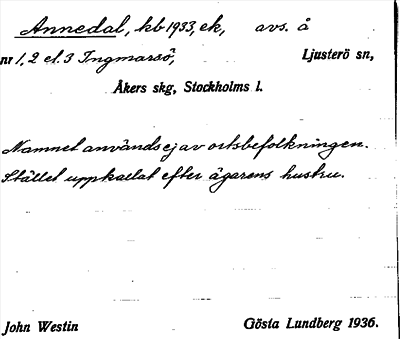 Annedal, kb 1933, ek, avs. å
nr 1, 2 el. 3 Ingmarsö, Ljusterö sn,
Åkers skg, Stockholms l.
Namnet användes ej av ortsbefolkningen.
Stället uppkallat efter ägarens hustru.
John Westin Gösta Lundberg 1936.